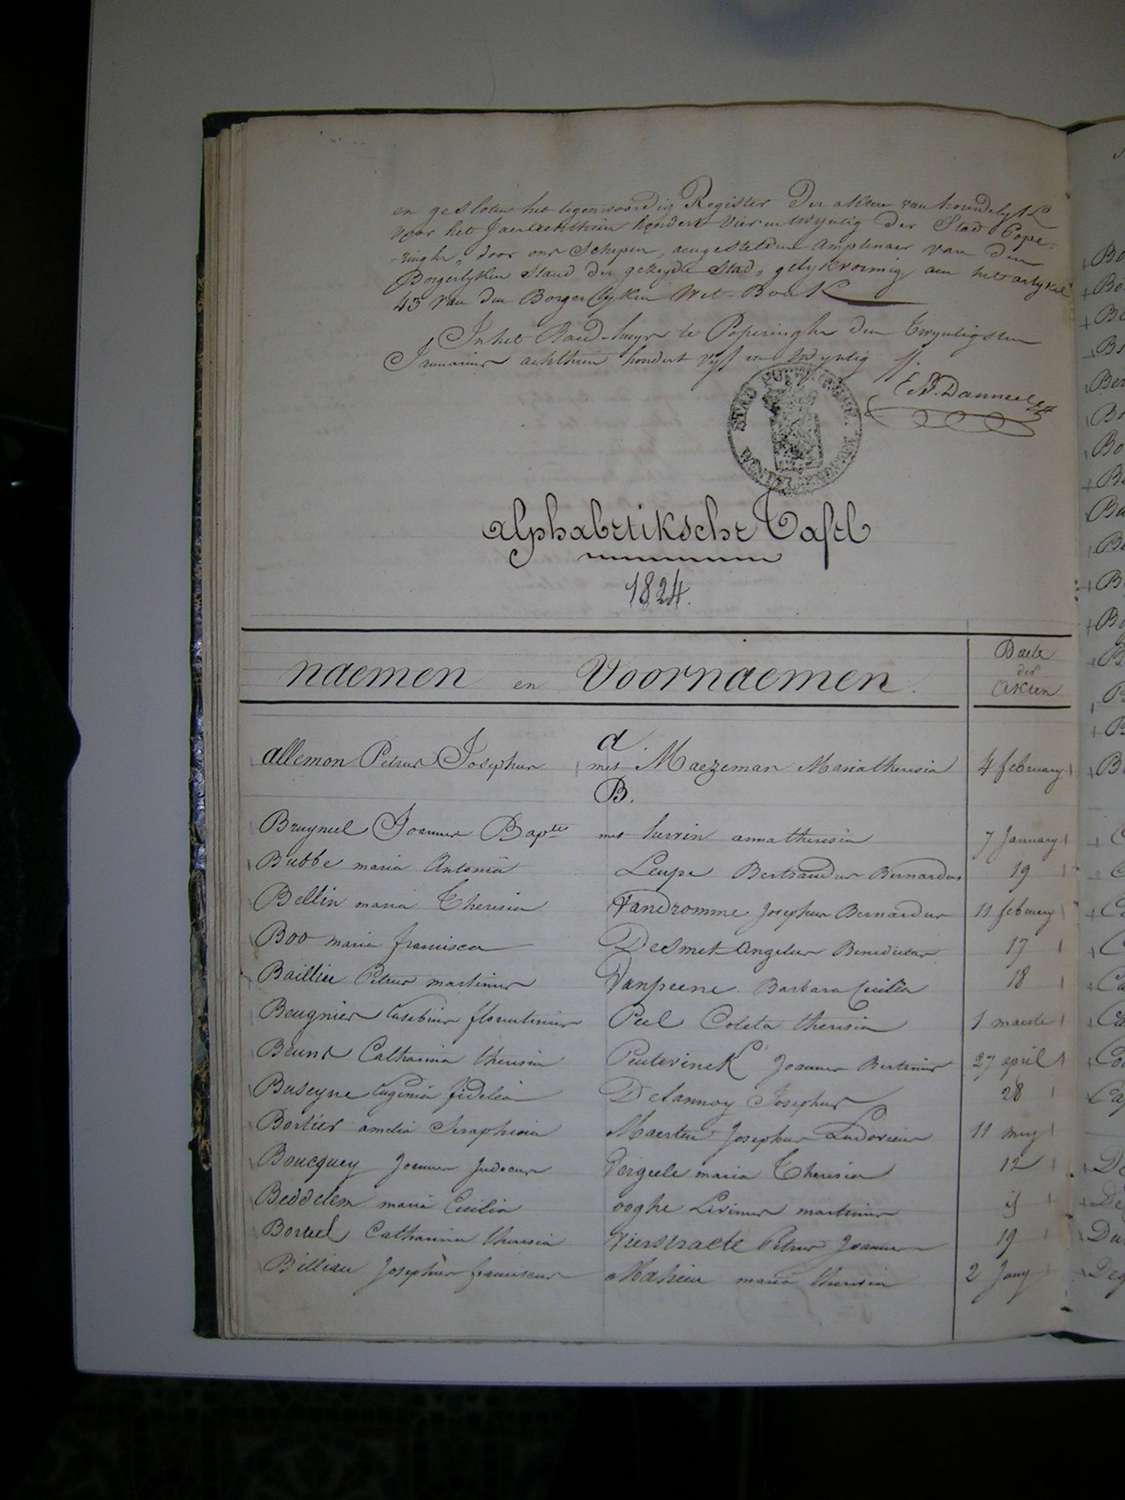 en gesloten het tegenwoordig Register der akten van houwelyk
voor het Jaer achthien hondert vier en twyntig der Stad Pope-
-ringhe, door ons Schepen, aengestelden amptenaer van den
Borgerlyken Stand der gezeyde Stad, gelykvormig aen het artykel
43 van den Borgerlyken Wet-Boek
In het Raed-huys te Poperinghe den twyntigsten
Januarius achthien hondert vyf en twyntig
STAD POPERINGHE
alphabetiksche Tafel
1824.
naemen en Voornaemen.
Daete
der
akten
a.
allemon Petrus Josephus met Maezeman Maria theresia 4 february
B.
Bruyneel Joannes Bapte met anna theresia 7 January
Bubbe maria Antonia Leupe Bertrandus Bernardus 19
Bellin maria Theresia Vandromme Josephus Bernardus 11 february
Boo maria francisca Desmet angelus Benedictus 17
Baillieu Petrus martinus Vanpeene Barbara Cecilia 18
Beugnier Eusebius florentinus Peel Coleta theresia 1 maerte
Beunk Catharina theresia Peuterinck Joannes Bertinus 27 april
Buseyne Eugenia fidelia Delannoy Josephus 28
Bortier amelia Seraphina Maerten Josephus Ludovicus 11 mey
Boucquey Joannes Judocus Vergeele maria Theresia 12
Beddelem maria Cecilia ooghe Livinus martinus
Borteel Catharina theresia Vierstraete Petrus Joannes 19
Billiau Josephus franciscus Mahieu maria theresia 2 Juny